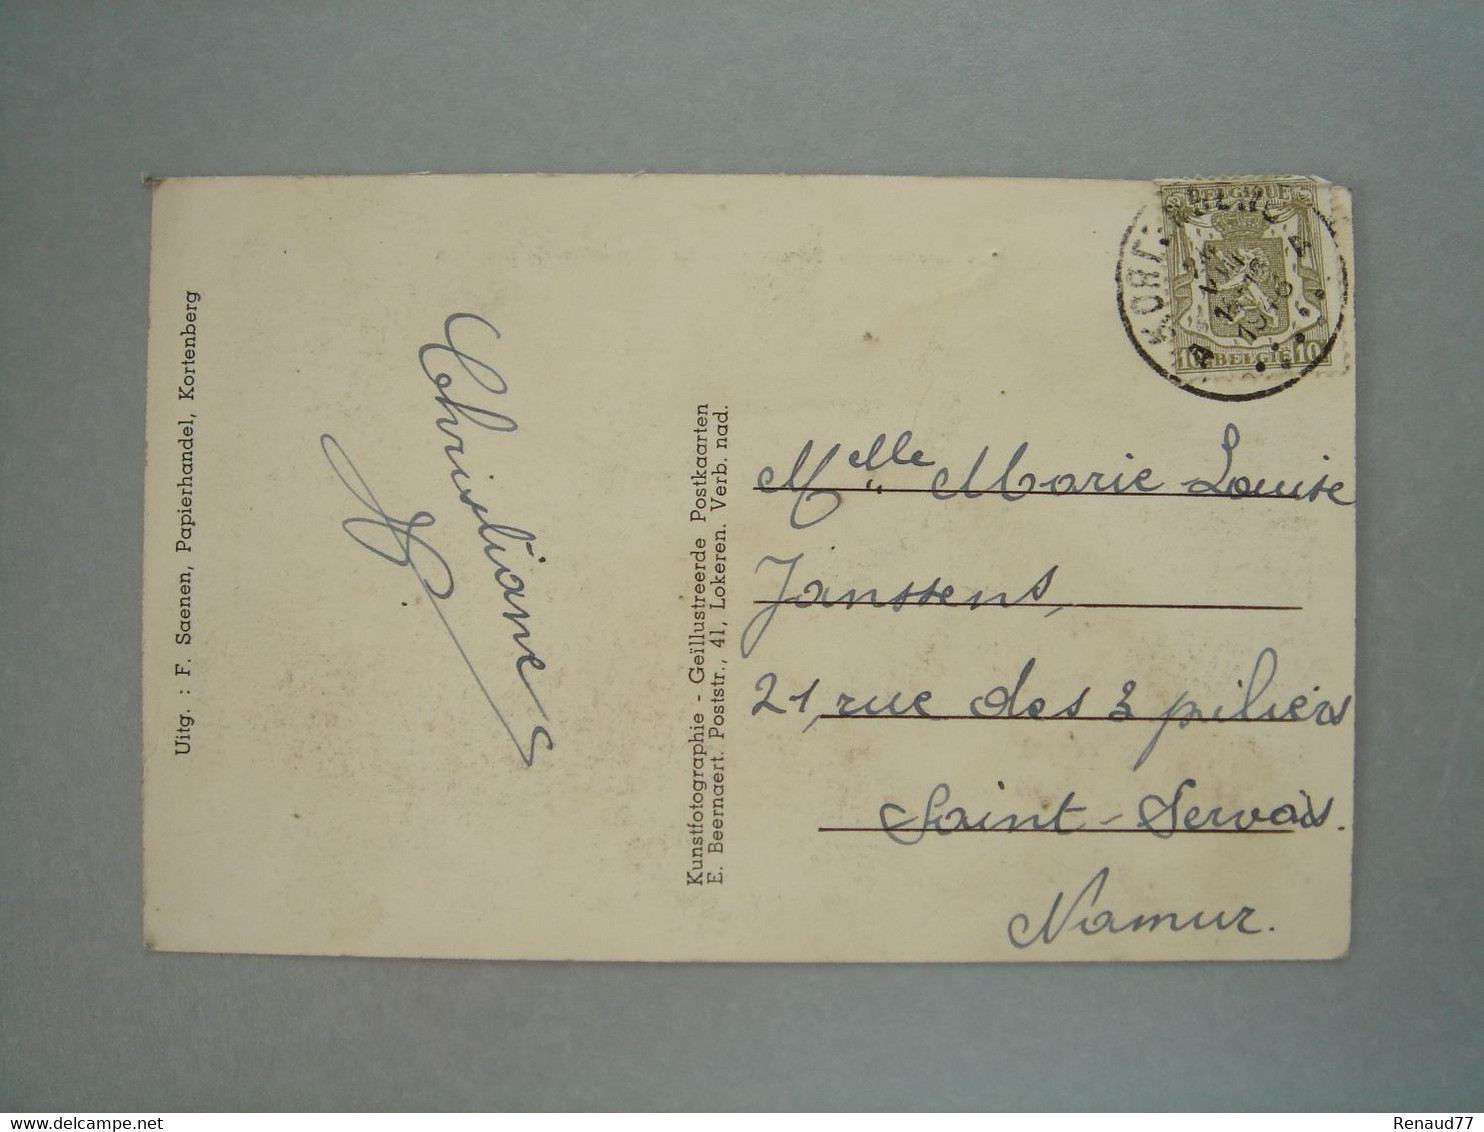 Uitg. : F. Saenen, Papierhandel, Kortenberg
Christiane
Kunstfotographie - Geïllustreerde Postkaarten
E. Beernaert. Poststr., 41, Lokeren. Verb. nad.
BELGIQUE
10 BELGIË 10
Melle Marie Louise
Janssens,
21, rue des 3 piliers
Saint-Servais.
Namur.
www.delcampe.net
Renaud77